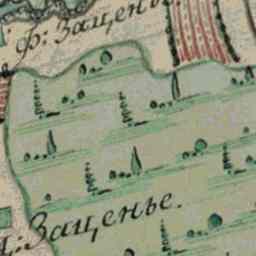 ф: Заценье.
д: Заценье.